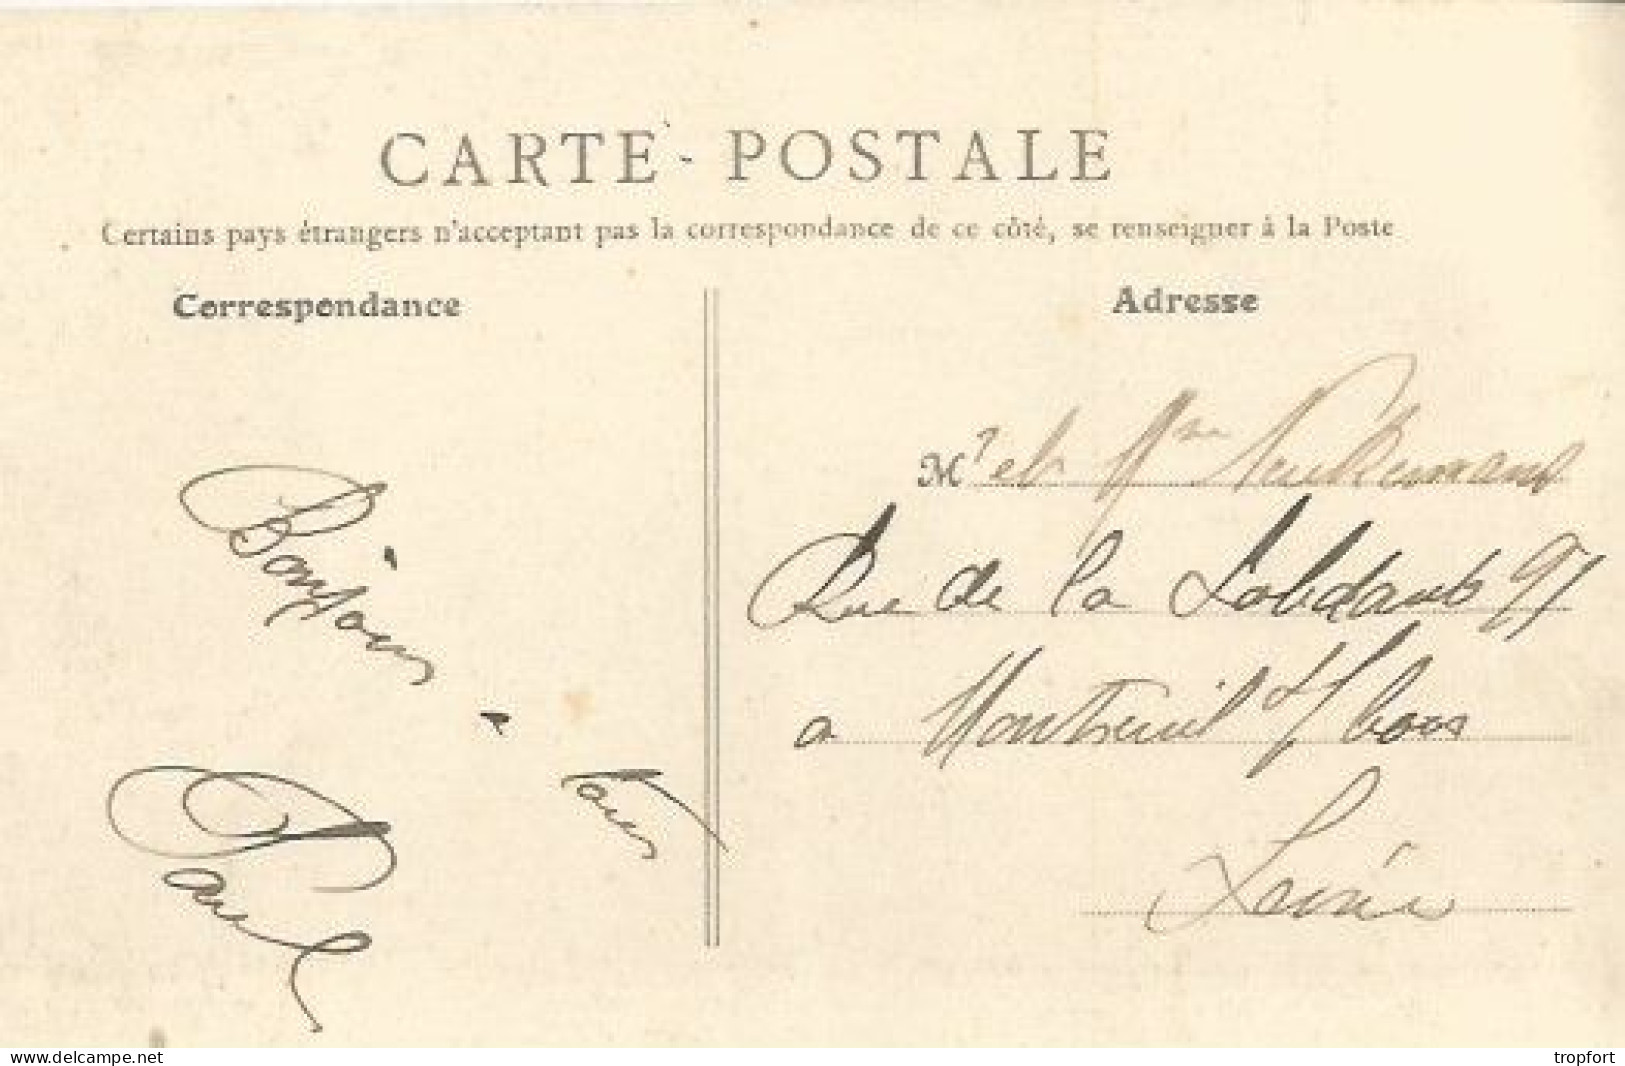 CARTE - POSTALE
Certains pays étrangers n'acceptant pas la correspondance de ce côté, se renseigner à la Poste
Correspondance
Adresse
Bonjour
a
tous
Paul
Mr et Mme
Rue de la 97
a Montreuil s/ bois
Seine
www.delcampe.net
tropfort